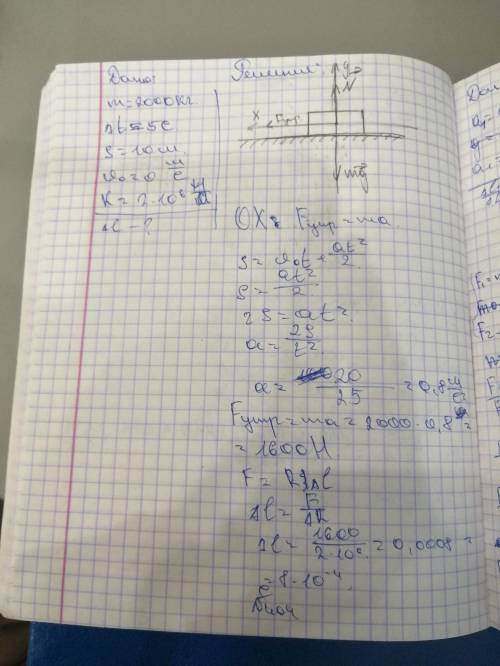 Дано:
m=2000кг
Δt=5с
S=10м.
v₀=0 м/с
K=2·10⁶ Н/м
Δl-?
Решение:
y
N
X Fупр
mg
OX: Fупр=ma.
S=v₀t+at²/2
S=at²/2
2S=at²
a=2S/t²
a=20/25=0,8 м/с
Fупр=ma=2000·0,8=
=1600Н
F=kΔl
Δl=F/k
Δl=1600/2·10⁶=0,0008=
=8·10⁻⁴
a₁
F₂